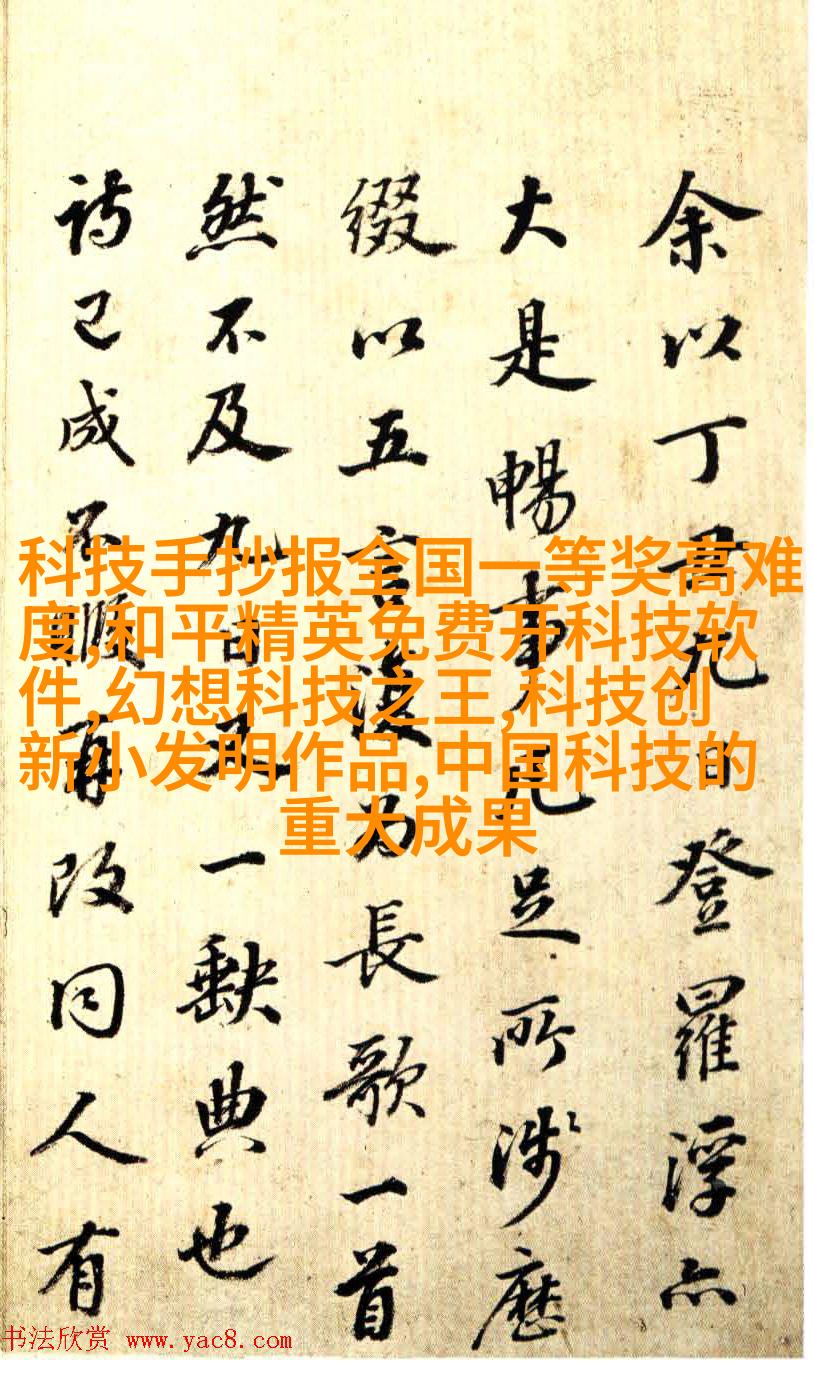 余以丁丑九日登羅浮亦
大是暢事凡足所涉歷
綴以五言為長歌一首
然不及九日一缺典也
詩已成不暇再改同人有
科技手抄报全国一等奖高难
度,和平精英免费开科技软
件,幻想科技之王,科技创
新小发明作品,中国科技的
重大成果
书法欣赏 www.yac8.com